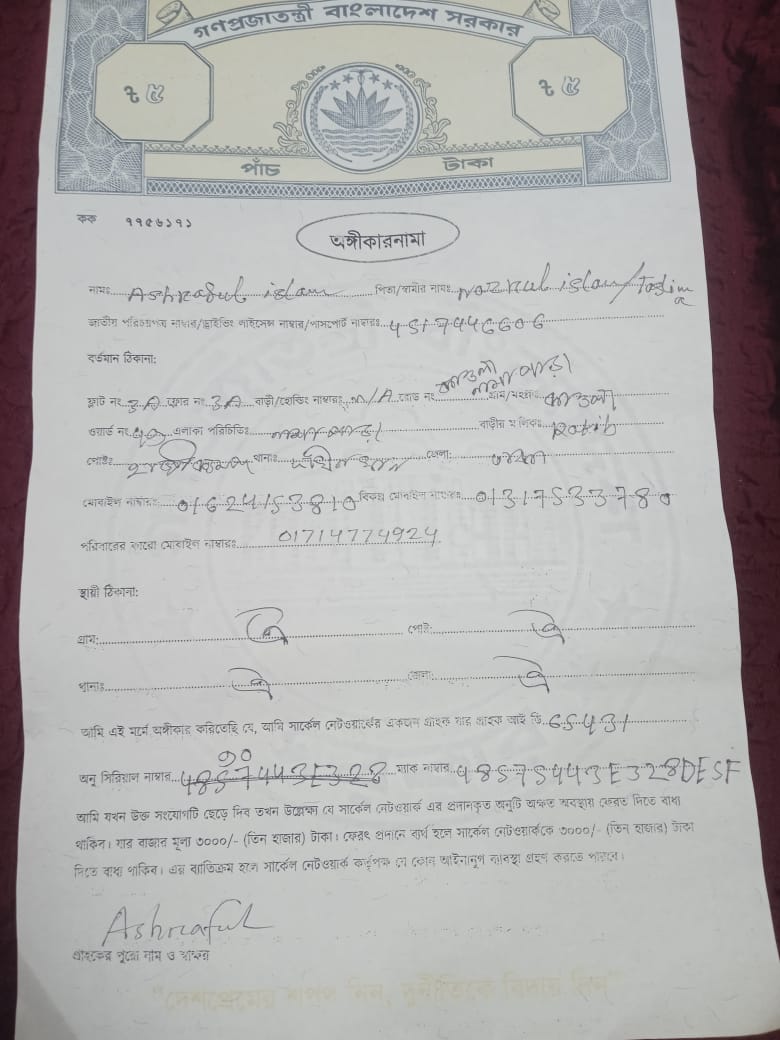 গণপ্রজাতন্ত্রী বাংলাদেশ সরকার
৳ ৫ ৳ ৫
পাঁচ টাকা
কক ৭৭৫৬১৭১
অঙ্গীকারনামা
নামঃ Ashraful islam পিতা/স্বামীর নামঃ Nozrul islam/Taslima
জাতীয় পরিচয়পত্র নাম্বার/ড্রাইভিং লাইসেন্স নাম্বার/পাসপোর্ট নাম্বারঃ
বর্তমান ঠিকানা:
ফ্লাট নং 3A ফ্লোর নং 3A বাড়ী/হোল্ডিং নাম্বারঃ N/A রোড নং কাওলা নামাপাড়া গ্রাম/মহল্লাঃ কাওলা
ওয়ার্ড নং এলাকা পরিচিতিঃ নামাপাড়া বাড়ীর মালিকঃ Rakib
পোষ্টঃ থানাঃ দক্ষিনখান জেলা: ঢাকা
মোবাইল নাম্বারঃ 01624153810 বিকল্প মোবাইল নাম্বারঃ 01317533780
পরিবারের কারো মোবাইল নাম্বারঃ 01714774924
স্থায়ী ঠিকানা:
গ্রাম: ঐ পোষ্ট: ঐ
থানাঃ ঐ জেলা: ঐ
আমি এই মর্মে অঙ্গীকার করিতেছি যে, আমি সার্কেল নেটওয়ার্কের একজন গ্রাহক যার গ্রাহক আই ডি 65431
অনু সিরিয়াল নাম্বার ম্যাক নাম্বার 48575443E328DE5F
আমি যখন উক্ত সংযোগটি ছেড়ে দিব তখন উল্লেক্ষ্য যে সার্কেল নেটওয়ার্ক এর প্রদানকৃত অনুটি অক্ষত অবস্থায় ফেরত দিতে বাধ্য
থাকিব। যার বাজার মূল্য ৩০০০/- (তিন হাজার) টাকা। ফেরৎ প্রদানে ব্যর্থ হলে সার্কেল নেটওয়ার্ককে ৩০০০/- (তিন হাজার) টাকা
দিতে বাধ্য থাকিব। এর ব্যতিক্রম হলে সার্কেল নেটওয়ার্ক কর্তৃপক্ষ যে কোন আইনানুগ ব্যবস্থা গ্রহণ করতে পারবে।
Ashraful
গ্রাহকের পুরো নাম ও স্বাক্ষর
"দেশপ্রেমের শপথ নিন, দুর্নীতিকে বিদায় দিন"